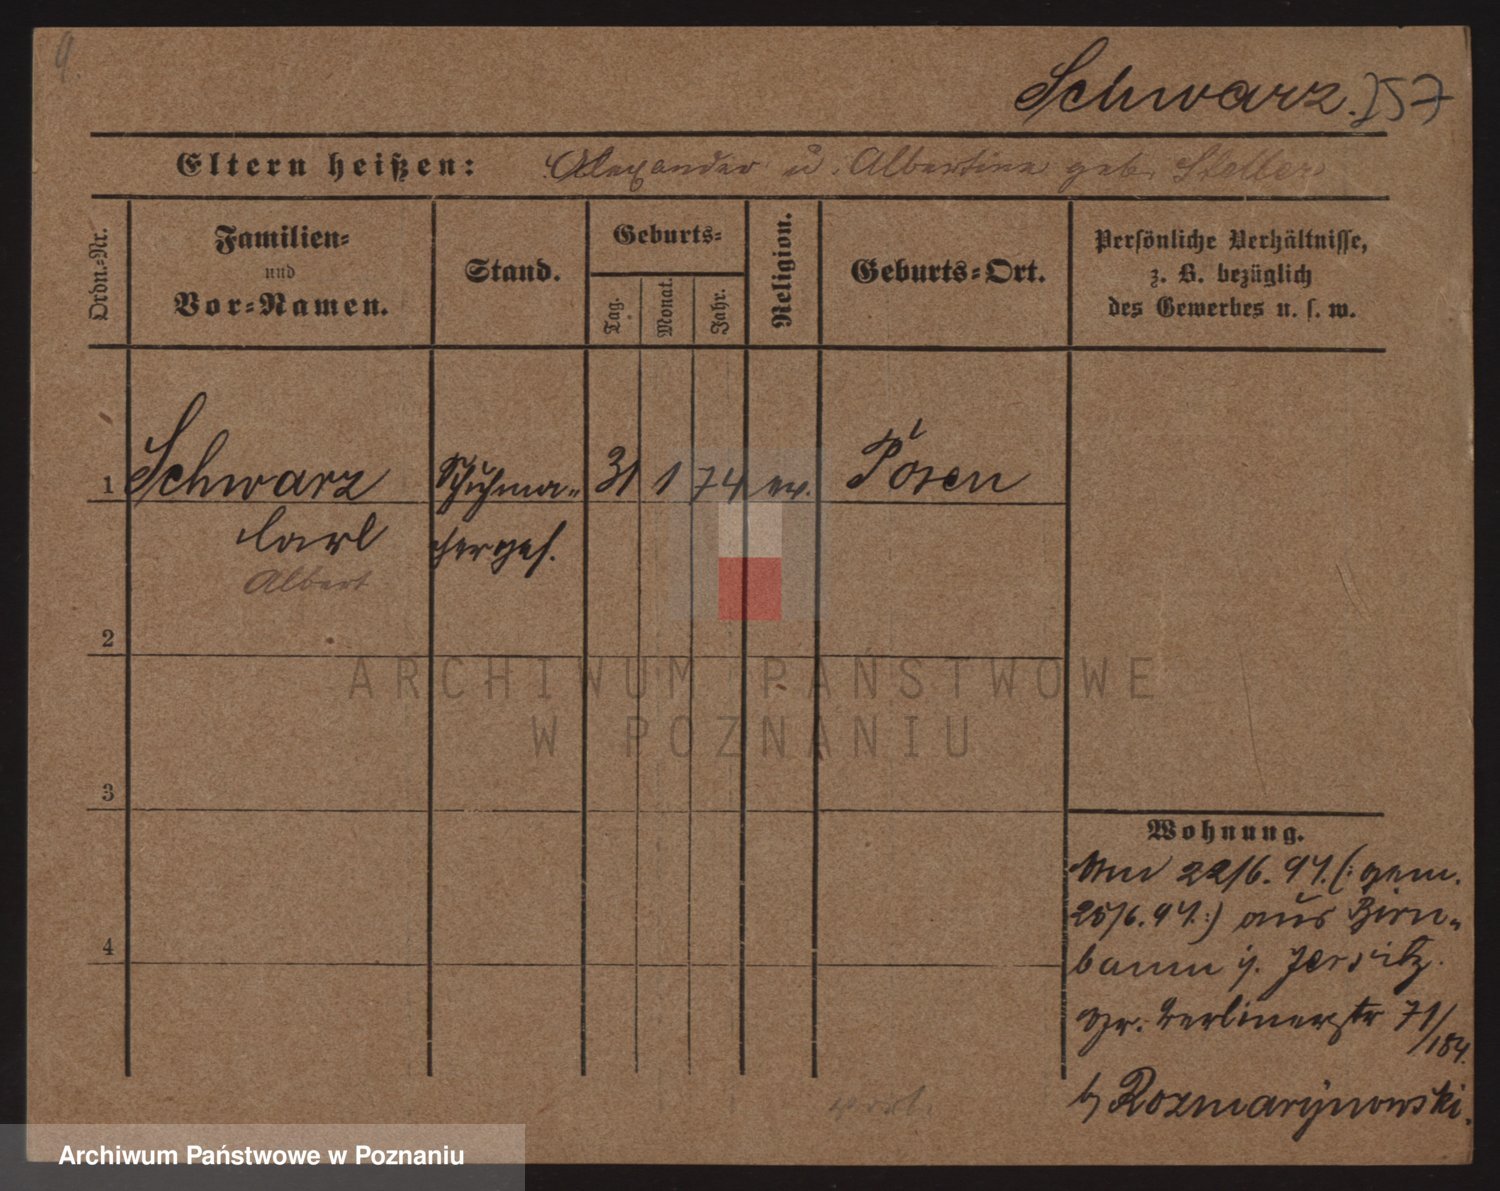 9.
Schwarz. 257
Eltern heißen: Alexander u. Albertine geb. Steller
Ordn.-Nr.
Familien-
und
Vor-Namen.
Stand.
Geburts-
Tag.
Monat.
Jahr.
Religion.
Geburts-Ort.
Persönliche Verhältnisse,
z. B. bezüglich
des Gewerbes u. s. w.
1 Schwarz Schuhma- 31 1 74 ev. Posen
Carl cherges.
Albert
2
3
4
Wohnung.
Am 22/6. 97. (: gem.
25/6. 97. :) aus Birn-
baum n. Jersitz.
Gr. Berlinerstr 71/184.
b/ Rozmarynowski.
ARCHIWUM PAŃSTWOWE
W POZNANIU
Archiwum Państwowe w Poznaniu